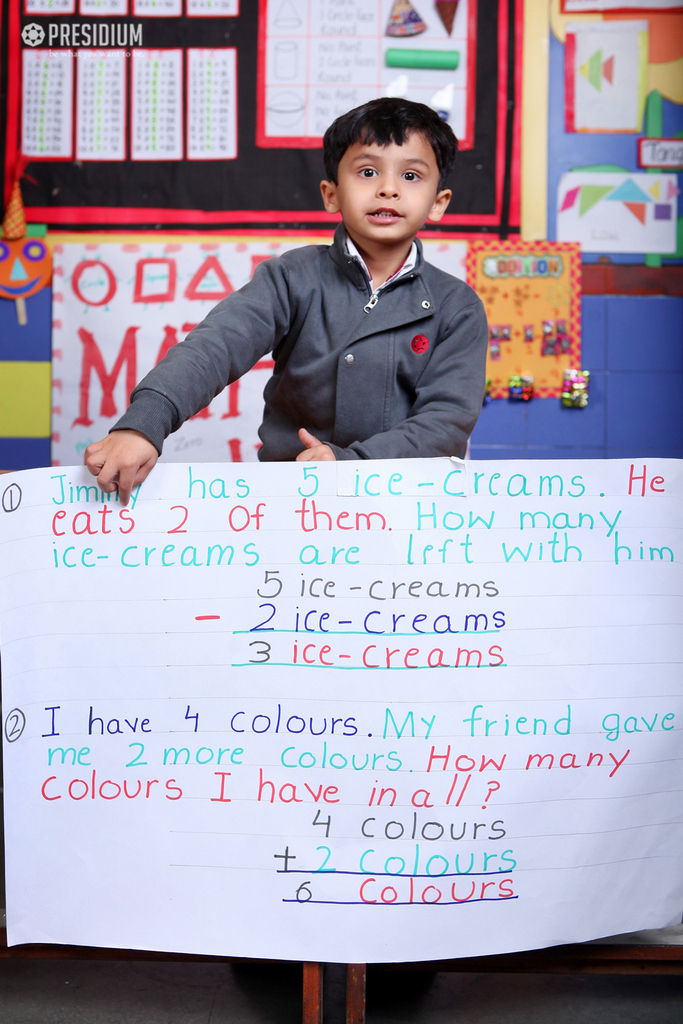 PRESIDIUM
be what you want to be
Circle
Square
Triangle
ADDITION
Zero
① Jimmy has 5 ice-creams. He
eats 2 of them. How many
ice-creams are left with him
5 ice-creams
- 2 ice-creams
3 ice-creams
② I have 4 colours. My friend gave
me 2 more colours. How many
colours I have in all?
4 colours
+ 2 colours
6 colours